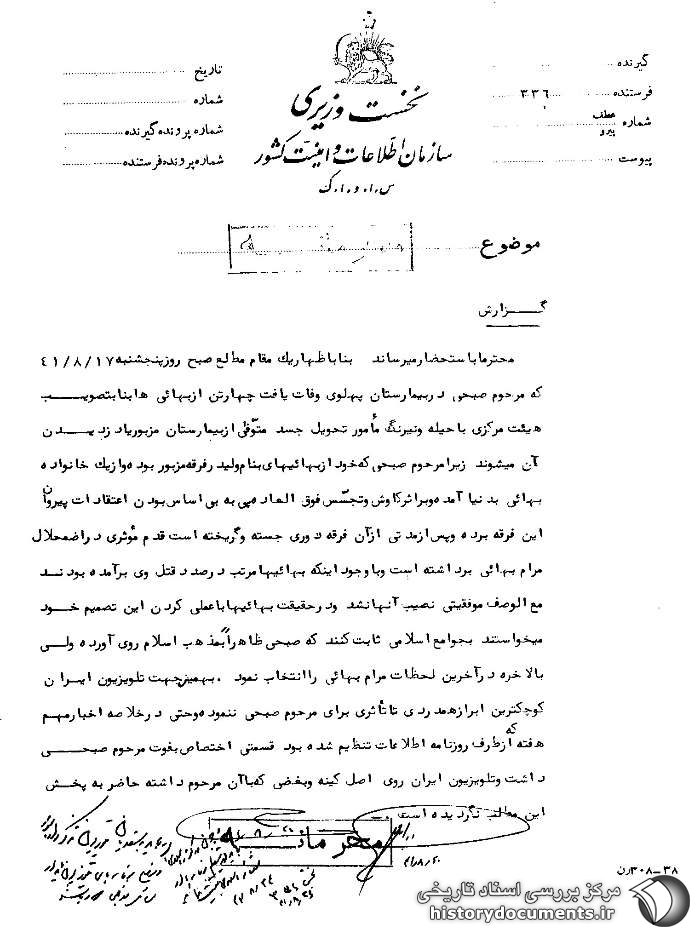 نخست وزیری
سازمان اطلاعات و امنیت کشور
س.ا.و.ا.ک
گیرنده
فرستنده ۳۳۶
شماره عطف پیرو
پیوست
تاریخ
شماره
شماره پرونده گیرنده
شماره پرونده فرستنده
موضوع
گزارش
محترما باستحضار میرساند بنا باظهار یک مقام مطلع صبح روز پنجشنبه ۴۱/۸/۱۷
که مرحوم صبحی در بیمارستان پهلوی وفات یافت چهارتن از بهائی ها بنا بتصویب
هیئت مرکزی با حیله و نیرنگ مأمور تحویل جسد متوفی از بیمارستان مزبور یا دزدیدن
آن میشوند زیرا مرحوم صبحی که خود از بهائیهای بنام ولیدر فرقه مزبور بوده و از یک خانواده
بهائی بدنیا آمده و بر اثر کاوش و تجسس فوق العاده پی به بی اساس بودن اعتقادات پیروان
این فرقه برده و پس از مدتی از آن فرقه دوری جسته و گریخته است قدم مؤثری در اضمحلال
مرام بهائی برداشته است و با وجود اینکه بهائیها مرتب در صدد قتل وی برآمده بودند
مع الوصف موفقیتی نصیب آنها نشد و در حقیقت بهائیها با عملی کردن این تصمیم خود
میخواستند بجوامع اسلامی ثابت کنند که صبحی ظاهراً بمذهب اسلام روی آورده ولی
بالاخره در آخرین لحظات مرام بهائی را انتخاب نمود . بهمین جهت تلویزیون ایران
کوچکترین ابراز همدردی تا تأثری برای مرحوم صبحی ننموده و حتی در خلاصه اخبار مهم
هفته که از طرف روزنامه اطلاعات تنظیم شده بود قسمتی اختصاص بفوت مرحوم صبحی
داشت و تلویزیون ایران روی اصل کینه و بغضی که با آن مرحوم داشته حاضر به پخش
این مطالب نگردیده است .
محرمانه
۳۰۸-۳۸
مرکز بررسی اسناد تاریخی
historydocuments.ir